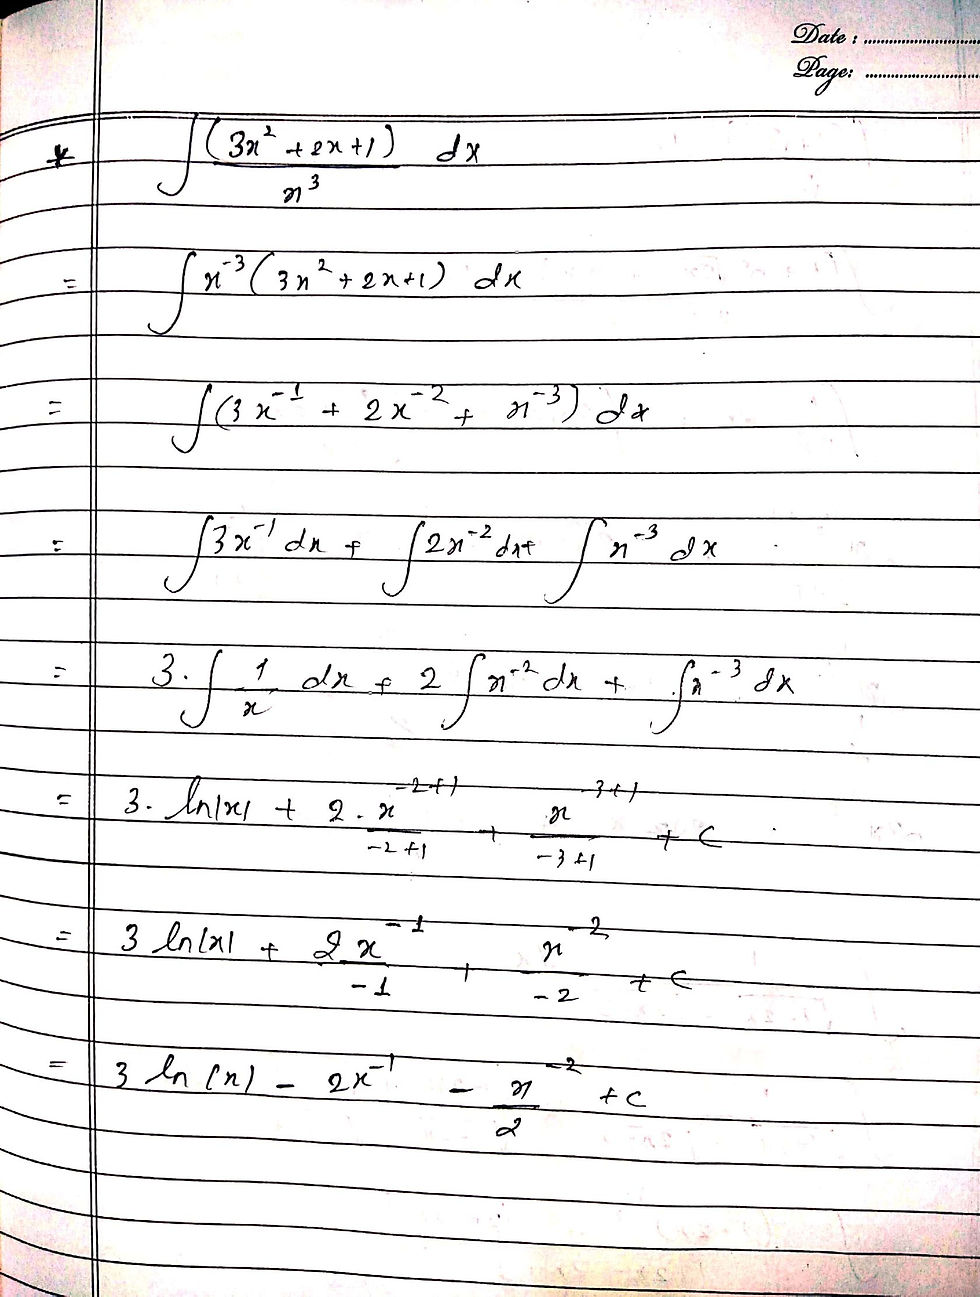 Date : ..............................
Page: ..............................
* ∫ (3x² + 2x + 1) / x³ dx
= ∫ x⁻³ (3x² + 2x + 1) dx
= ∫ (3x⁻¹ + 2x⁻² + x⁻³) dx
= ∫ 3x⁻¹ dx + ∫ 2x⁻² dx + ∫ x⁻³ dx
= 3. ∫ 1/x dx + 2 ∫ x⁻² dx + ∫ x⁻³ dx
= 3. ln|x| + 2 . x⁻²⁺¹ / -2+1 + x⁻³⁺¹ / -3+1 + c
= 3 ln|x| + 2x⁻¹ / -1 + x⁻² / -2 + c
= 3 ln |x| - 2x⁻¹ - x⁻² / 2 + c